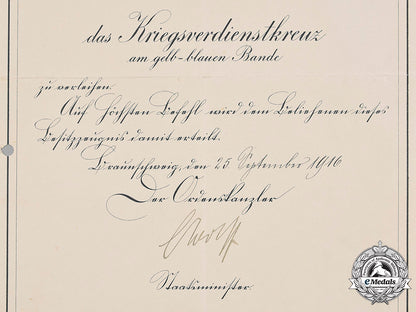 das Kriegsverdienstkreuz
am gelb-blauen Bande
zu verleihen.
Auf Höchsten Befehl wird dem Beliehenen dieses
Besitzzeugnis damit erteilt.
Braunschweig, den 25. September 1916
Der Ordenskanzler
Staatsminister.
eMedals